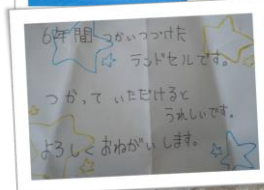 6年間 つかいつづけた
ランドセルです。
つかって いただけると
うれしいです。
よろしく おねがいします。